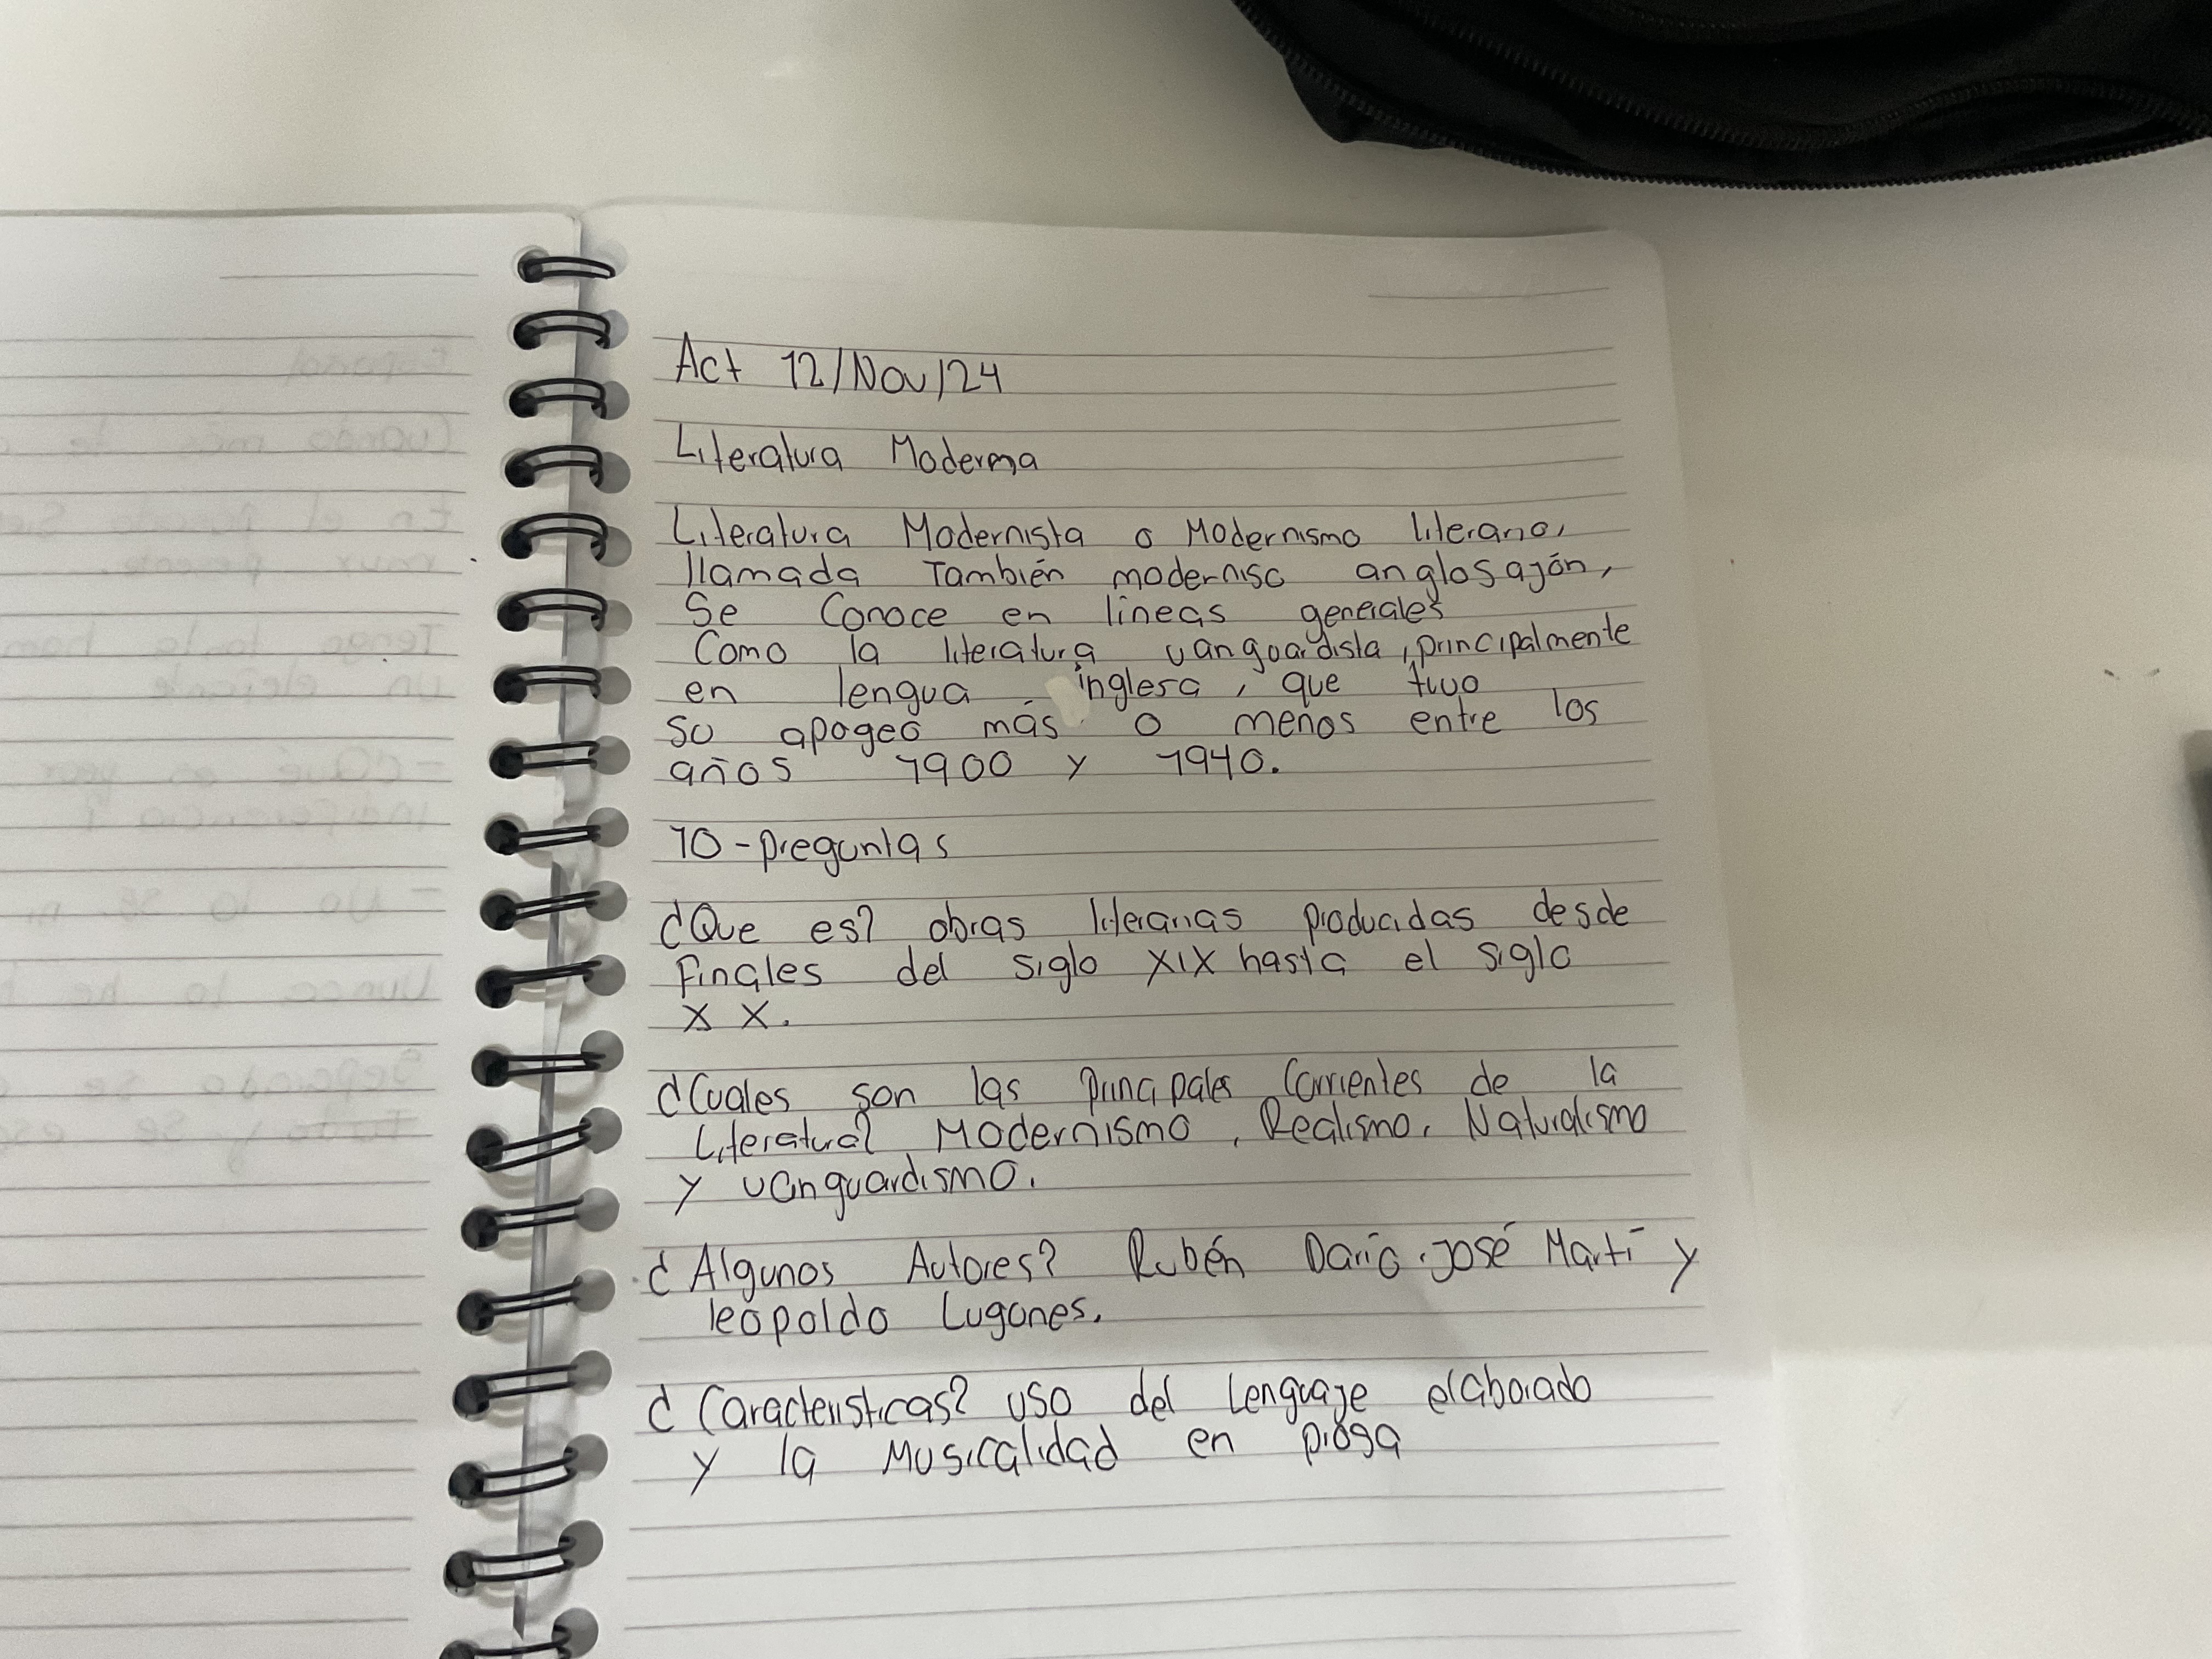 Act 12/Nov/24
Literatura Moderna
Literatura Modernista o Modernismo literario,
llamada También moderniso anglosajón,
Se Conoce en líneas generales
Como la literatura vanguardista, principalmente
en lengua inglesa, que tuvo
su apogeo más o menos entre los
años 1900 y 1940.
10-preguntas
¿Que es? obras literarias producidas desde
Finales del siglo XIX hasta el siglo
XX.
¿Cuales son las principales Corrientes de la
Literatura? Modernismo, Realismo, Naturalismo
y vanguardismo.
¿Algunos Autores? Rubén Darío, José Martí y
leopoldo Lugones.
¿Caracteristicas? uso del Lenguaje elaborado
y la Musicalidad en prosa